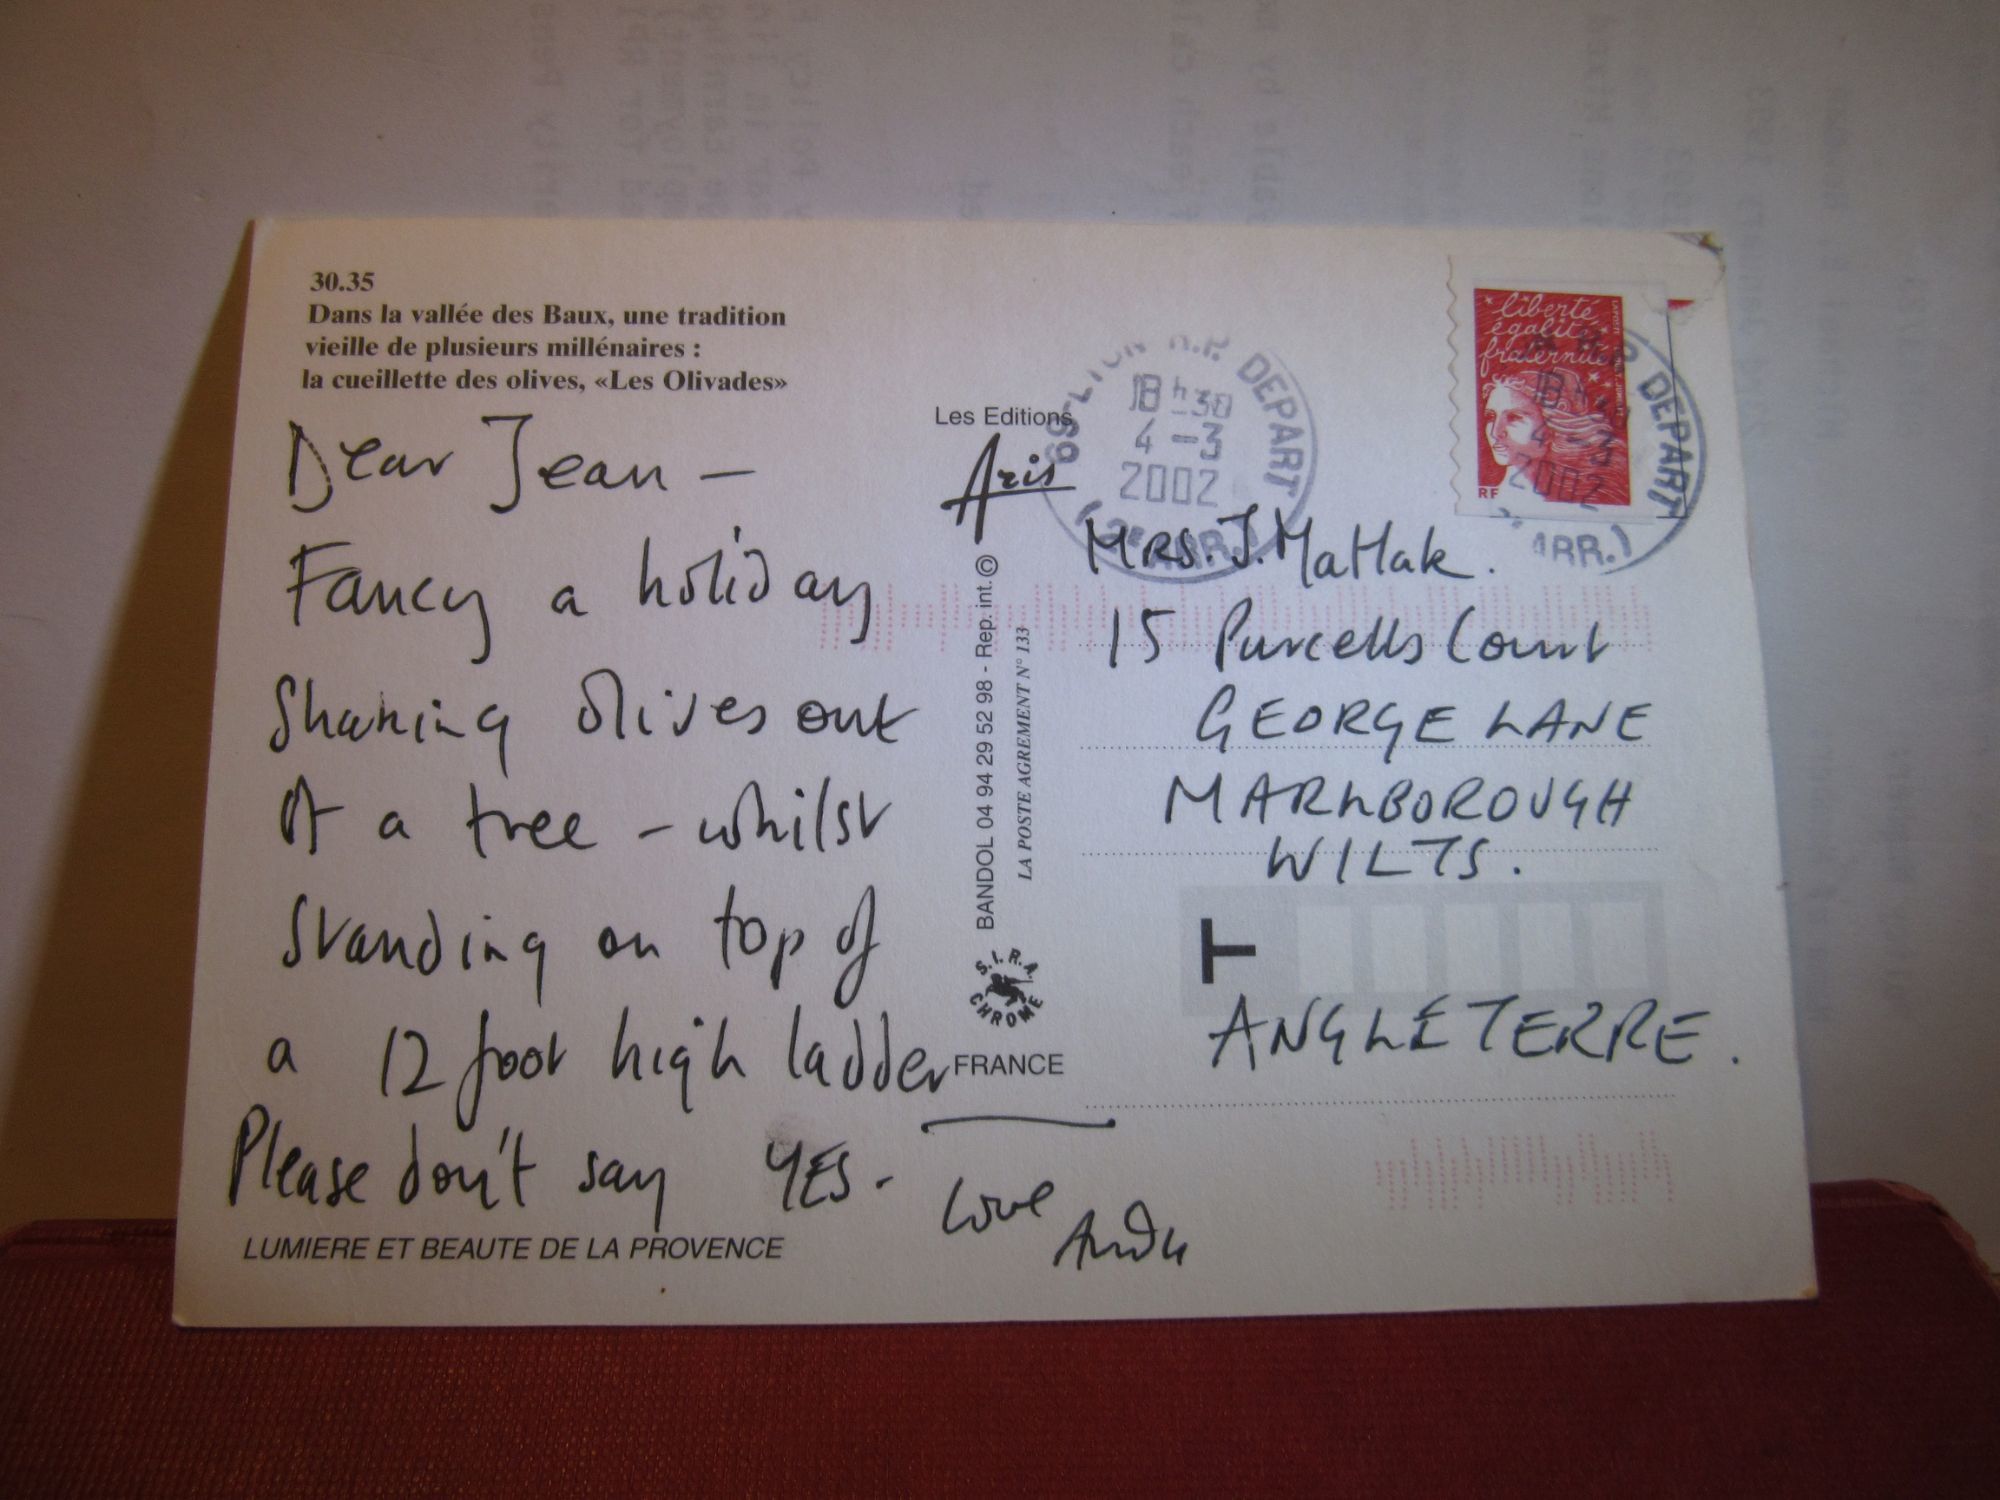 30.35
Dans la vallée des Baux, une tradition
vieille de plusieurs millénaires :
la cueillette des olives, «Les Olivades»
Dear Jean —
Fancy a holiday
Shaking olives out
of a tree – whilst
standing on top of
a 12 foot high ladder
Please don't say YES.
Love
LUMIERE ET BEAUTE DE LA PROVENCE
Les Editions
Aris
BANDOL 04 94 29 52 98 - Rep. int. ©
LA POSTE AGREMENT N° 133
S.I.R.A.
CHROME
FRANCE
R.P. DEPART
18h30
4 -3
2002
(2E ARR.)
liberté
égalité
fraternité
RF
DEPART
18h
4 -3
2002
ARR.)
Mrs. J. Matlak.
15 Purcells Court
GEORGE LANE
MARLBOROUGH
WILTS.
T
ANGLETERRE.